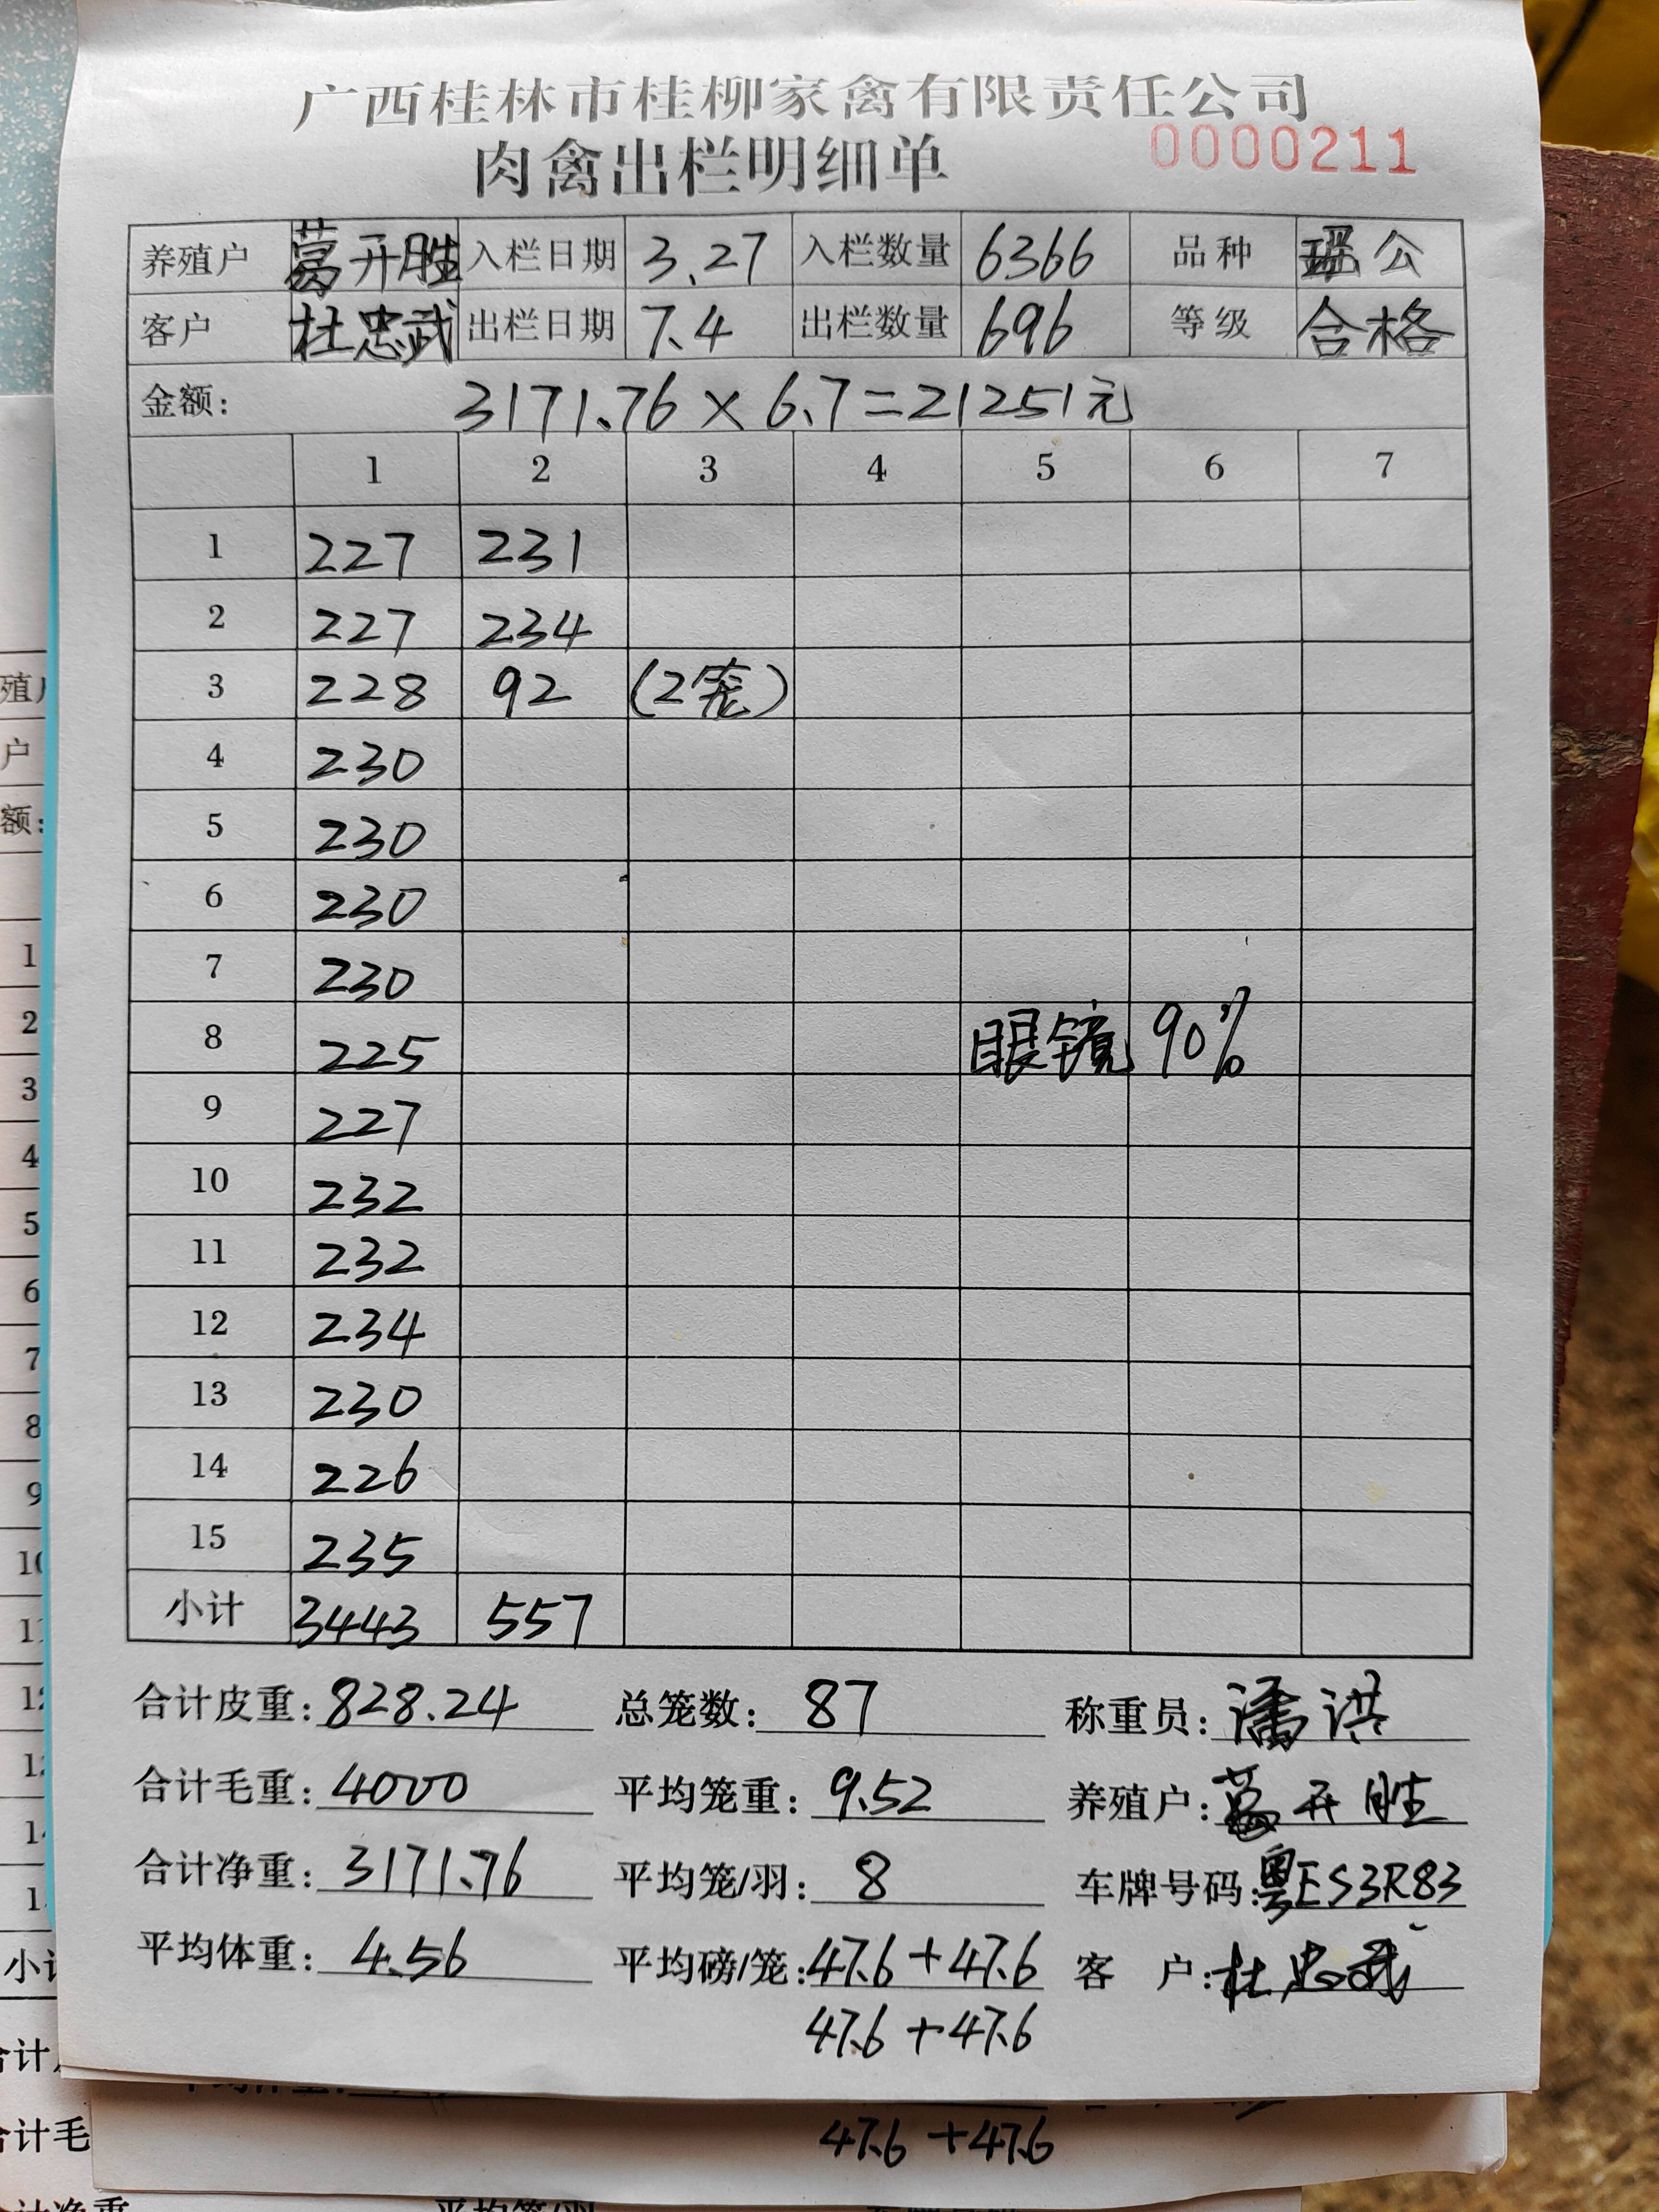 广西桂林市桂柳家禽有限责任公司
肉禽出栏明细单 0000211
养殖户 葛开胜 入栏日期 3.27 入栏数量 6366 品种 公
客户 杜忠武 出栏日期 7.4 出栏数量 696 等级 合格
金额: 3171.76×6.7=21251元
1 2 3 4 5 6 7
1 227 231
2 227 234
3 228 92 (2笼)
4 230
5 230
6 230
7 230
8 225 眼镜 90%
9 227
10 232
11 232
12 234
13 230
14 226
15 235
小计 3443 557
合计皮重: 828.24 总笼数: 87 称重员: 潘洪
合计毛重: 4000 平均笼重: 9.52 养殖户: 葛开胜
合计净重: 3171.76 平均笼/羽: 8 车牌号码: 粤ES3R83
平均体重: 4.56 平均磅/笼: 47.6+47.6 客户: 杜忠武
47.6+47.6
47.6+47.6
殖
户
额:
1
2
3
4
5
6
7
8
9
10
小
合计
合计毛